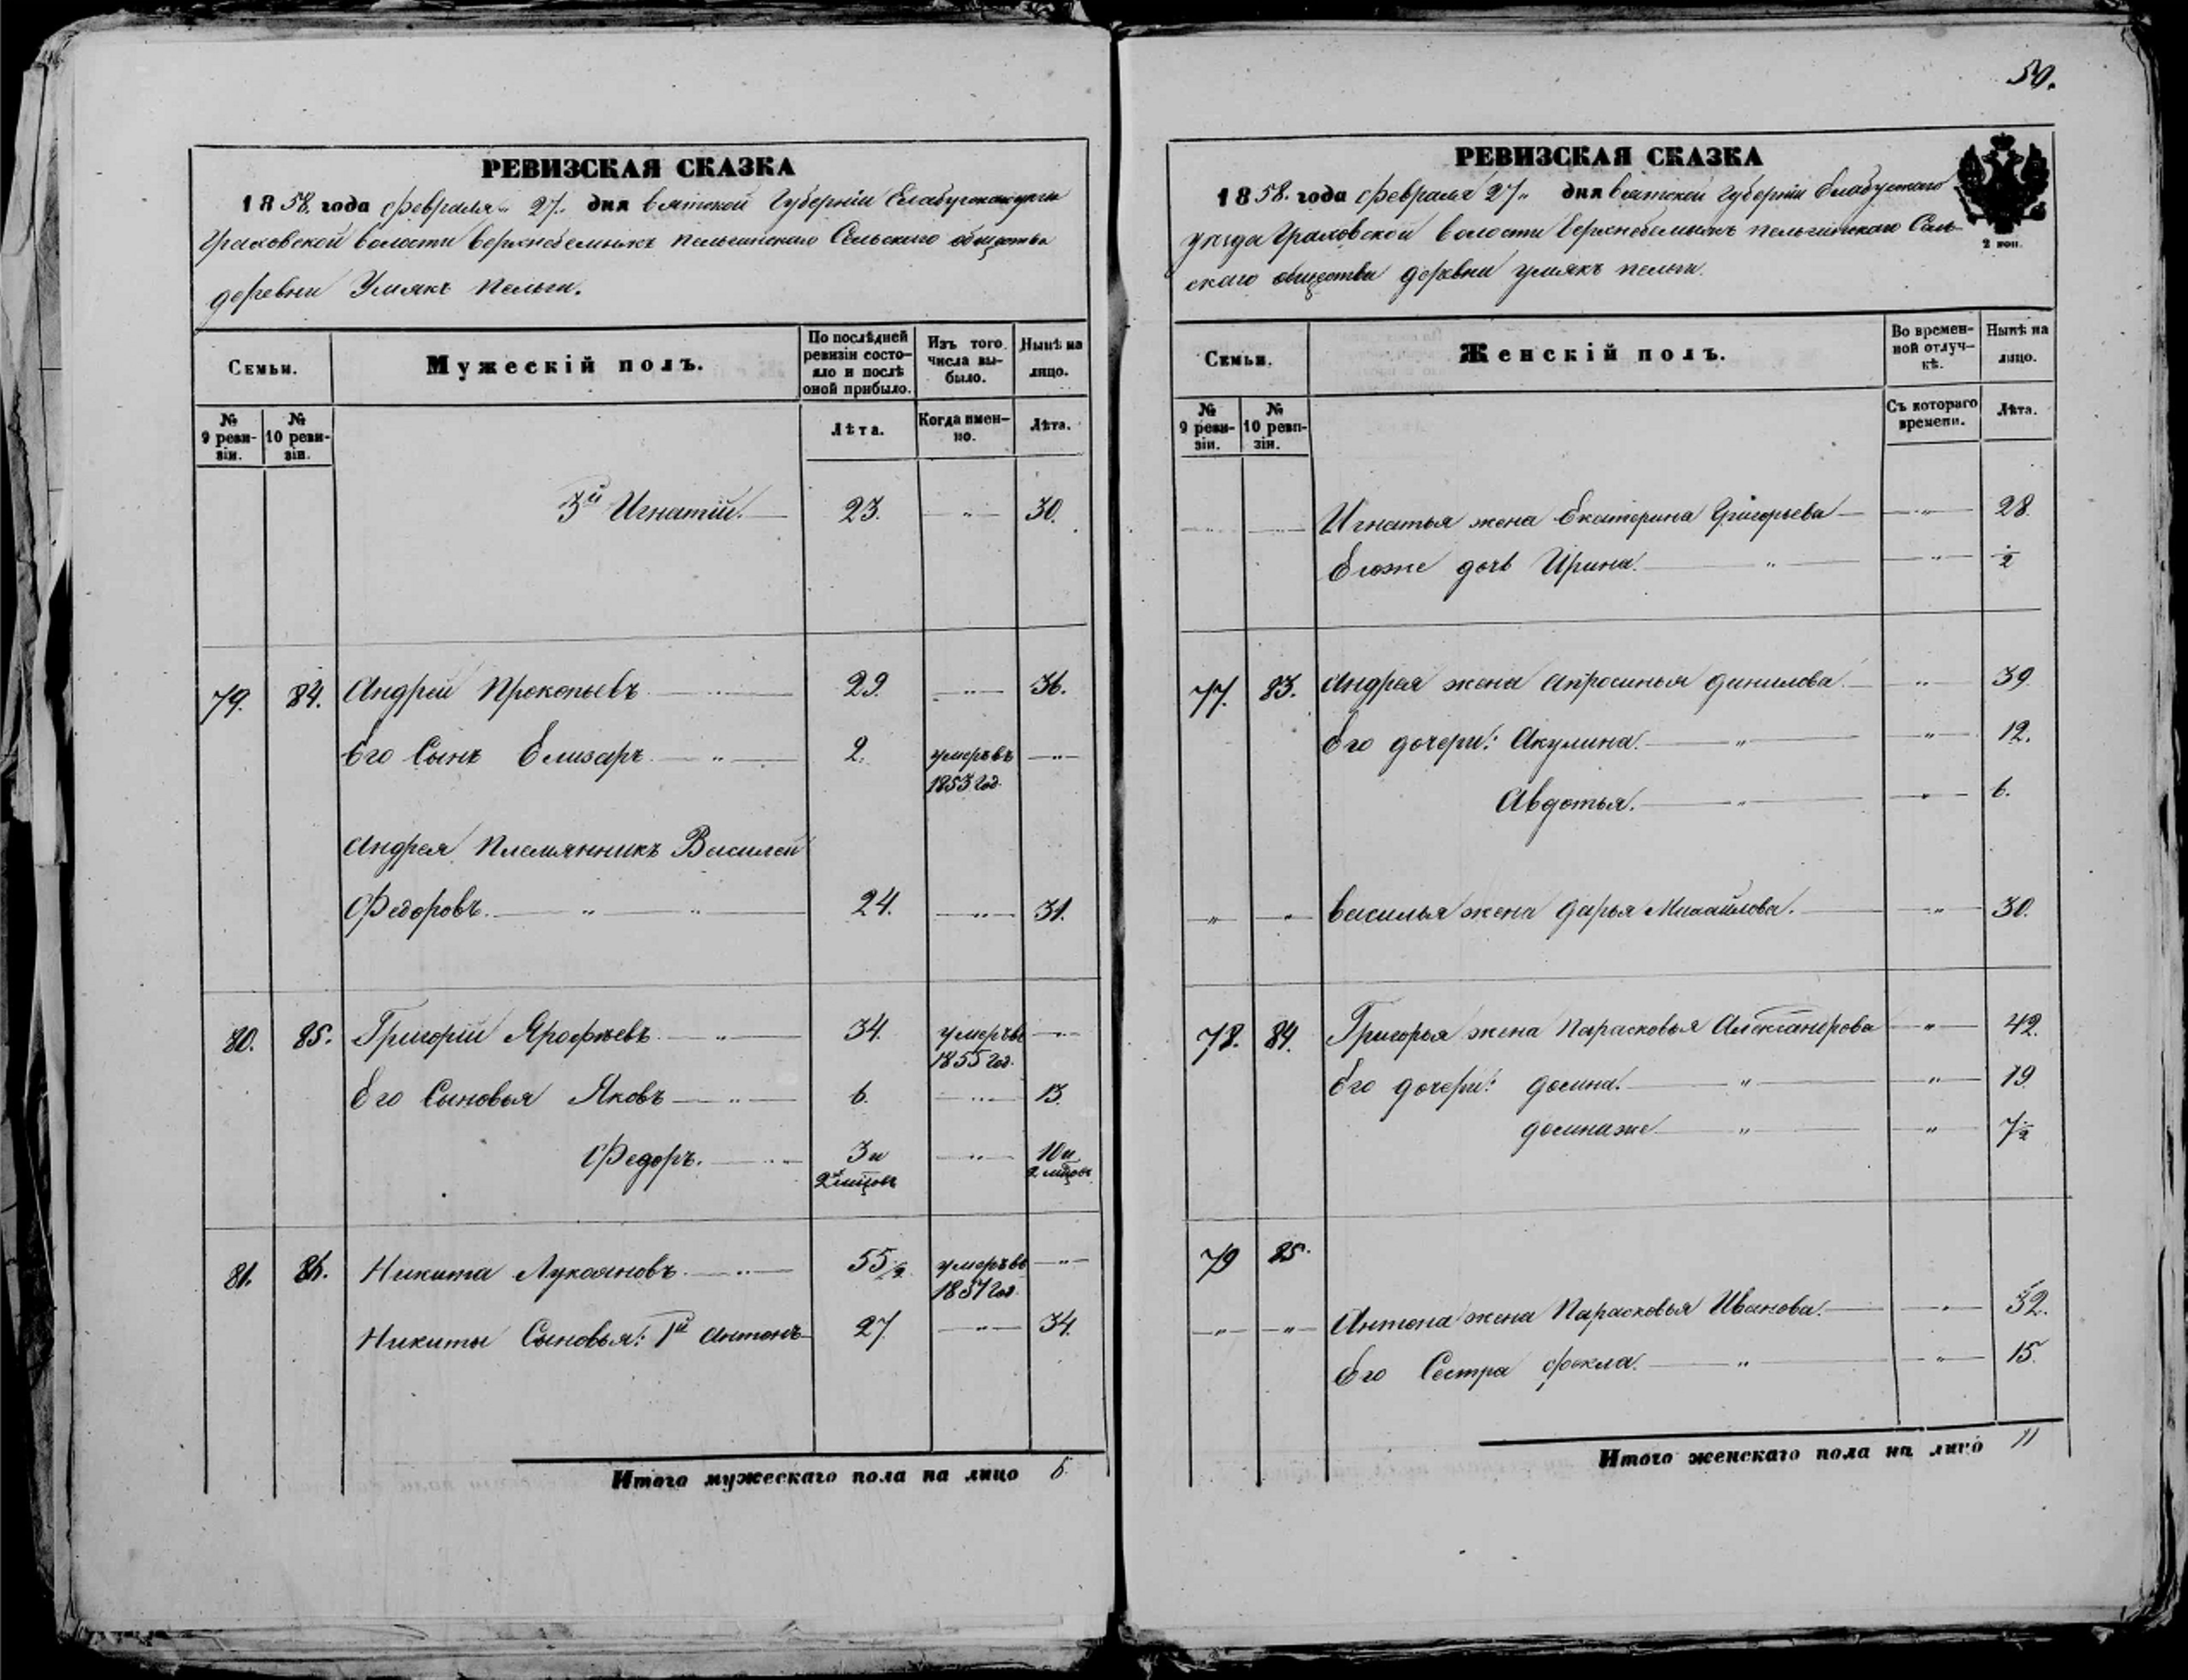 50.
РЕВИЗСКАЯ СКАЗКА
1858. года февраля 27. дня вятской Губернiи Елабугскаго уезда
Граховской волости верхнебемышъ пельгинскаго Сельскаго общества
деревни Умякъ пельги.
Семьи.
Мужескiй полъ.
По послѣдней ревизiи состо-
яло и послѣ
оной прибыло.
Изъ того
числа вы-
было.
Нынѣ на
лицо.
№
9 реви-
зiи.
№
10 реви-
зiи.
Лѣта.
Когда имен-
но.
Лѣта.
3й Игнатiй. 23. " 30.
79. 84. Андрей Прокопьевъ " 29. " 36.
Его Сынъ Елизаръ " 2. умеръ въ "
1853 год.
Андрея племянникъ Василей
Федоровъ. " " 24. " 31.
80. 85. Григорiй Ярофѣевъ " 34. умеръ въ "
1855 год.
Его Сыновья Яковъ " 6. " 13.
Федоръ. " 3 и " 10 и
2 мѣцовъ 2 мѣцовъ
81. 86. Никита Лукояновъ " 55 1/2 умеръ въ "
1857 год.
Никиты Сыновья: 1й Антонъ 27. " 34.
Итого мужескаго пола на лицо 6.
РЕВИЗСКАЯ СКАЗКА
1858. года февраля 27. дня вятской Губернiи Елабугскаго
уезда Граховской волости верхнебемышъ пельгинскаго Сель-
скаго общества деревни умякъ пельги.
2 коп.
Семьи.
Женскiй полъ.
Во времен-
ной отлуч-
кѣ.
Нынѣ на
лицо.
№
9 реви-
зiи.
№
10 реви-
зiи.
Съ котораго
времени.
Лѣта.
" " Игнатья жена Екатерина Григорьева " 28.
Егоже дочь Ирина. " " 1/2
77. 83. Андрея жена Апросинья Данилова. " 39.
Его дочери: Акулина. " " 12.
Авдотья. " " 6.
" " Василья жена Дарья Михайлова. " 30.
78. 84. Григорья жена Парасковья Александрова " 42.
Его дочери: Домна. " " 19.
Домнаже " " 7 1/2
79 85.
" " Антона жена Парасковья Иванова. " 32.
Его Сестра Фекла. " " 15.
Итого женскаго пола на лицо 11